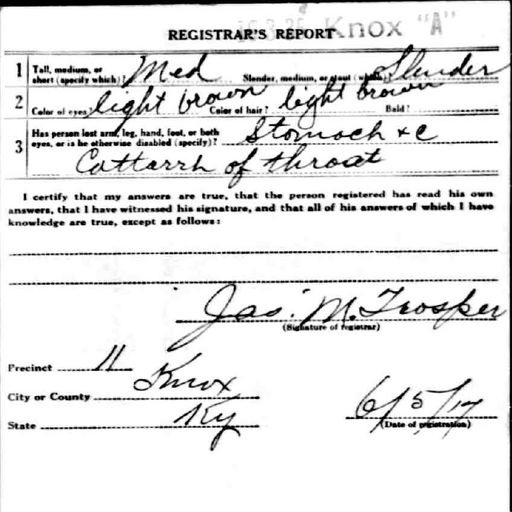 REGISTRAR'S REPORT Knox "A"
1 Tall, medium, or short (specify which)? Med Slender, medium, or stout (which)? Slender
2 Color of eyes? light brown Color of hair? light brown Bald?
3 Has person lost arm, leg, hand, foot, or both
eyes, or is he otherwise disabled (specify)? Stomach & c
Cattarrh of throat
I certify that my answers are true, that the person registered has read his own
answers, that I have witnessed his signature, and that all of his answers of which I have
knowledge are true, except as follows:
Jas. M. Trosper
(Signature of registrar)
Precinct 11
City or County Knox
State Ky
6/5/17
(Date of registration)